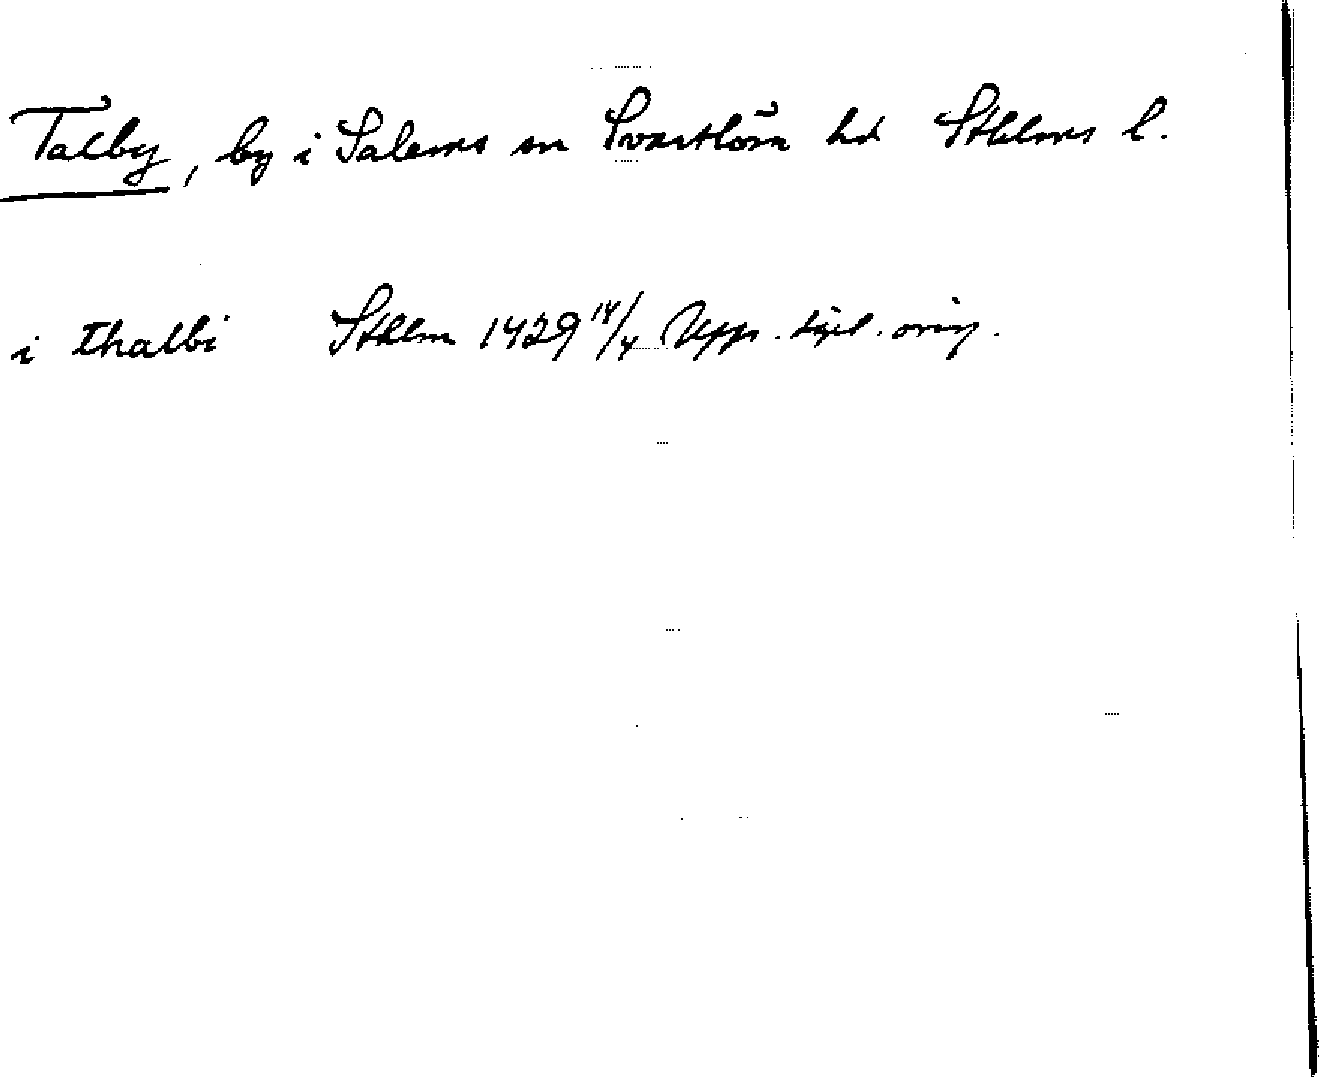 Talby, by i Salems sn Svartlösa hd Sthlms l.
i thalbi Sthlm 1429 14/4 Upps. dipl. orig.